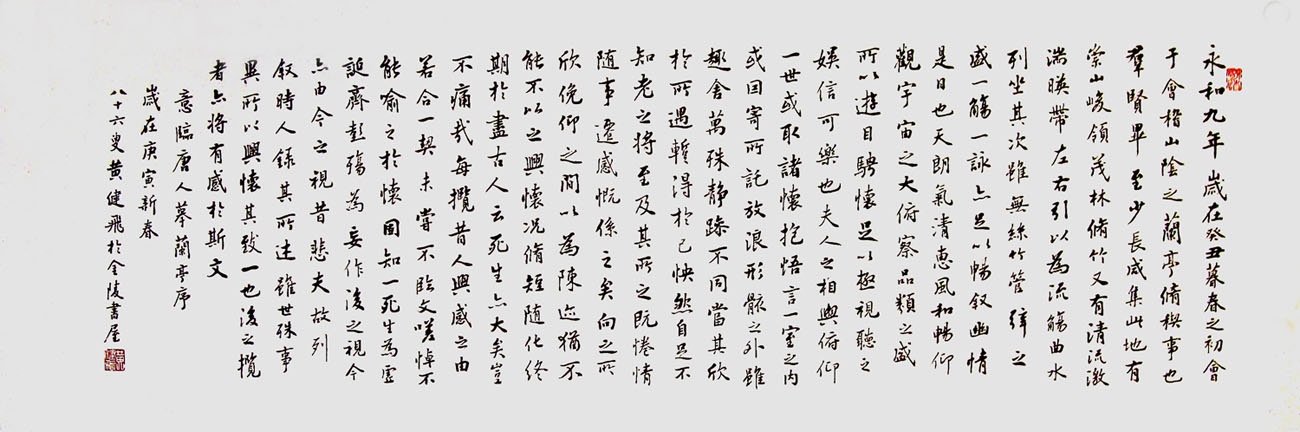 永和九年歲在癸丑暮春之初會
于會稽山陰之蘭亭脩禊事也
羣賢畢至少長咸集此地有
崇山峻領茂林脩竹又有清流激
湍暎帶左右引以為流觴曲水
列坐其次雖無絲竹管弦之
盛一觴一詠亦足以暢叙幽情
是日也天朗氣清惠風和暢仰
觀宇宙之大俯察品類之盛
所以遊目騁懷足以極視聽之
娛信可樂也夫人之相與俯仰
一世或取諸懷抱悟言一室之內
或因寄所託放浪形骸之外雖
趣舍萬殊靜躁不同當其欣
於所遇暫得於己怏然自足不
知老之將至及其所之既惓情
隨事遷感慨係之矣向之所
欣俛仰之間以為陳迹猶不
能不以之興懷況脩短隨化終
期於盡古人云死生亦大矣豈
不痛哉每攬昔人興感之由
若合一契未嘗不臨文嗟悼不
能喻之於懷固知一死生為虛
誕齊彭殤為妄作後之視今
亦由今之視昔悲夫故列
叙時人錄其所述雖世殊事
異所以興懷其致一也後之攬
者亦將有感於斯文
意臨唐人摹蘭亭序
歲在庚寅新春
八十六叟黃健飛於金陵書屋